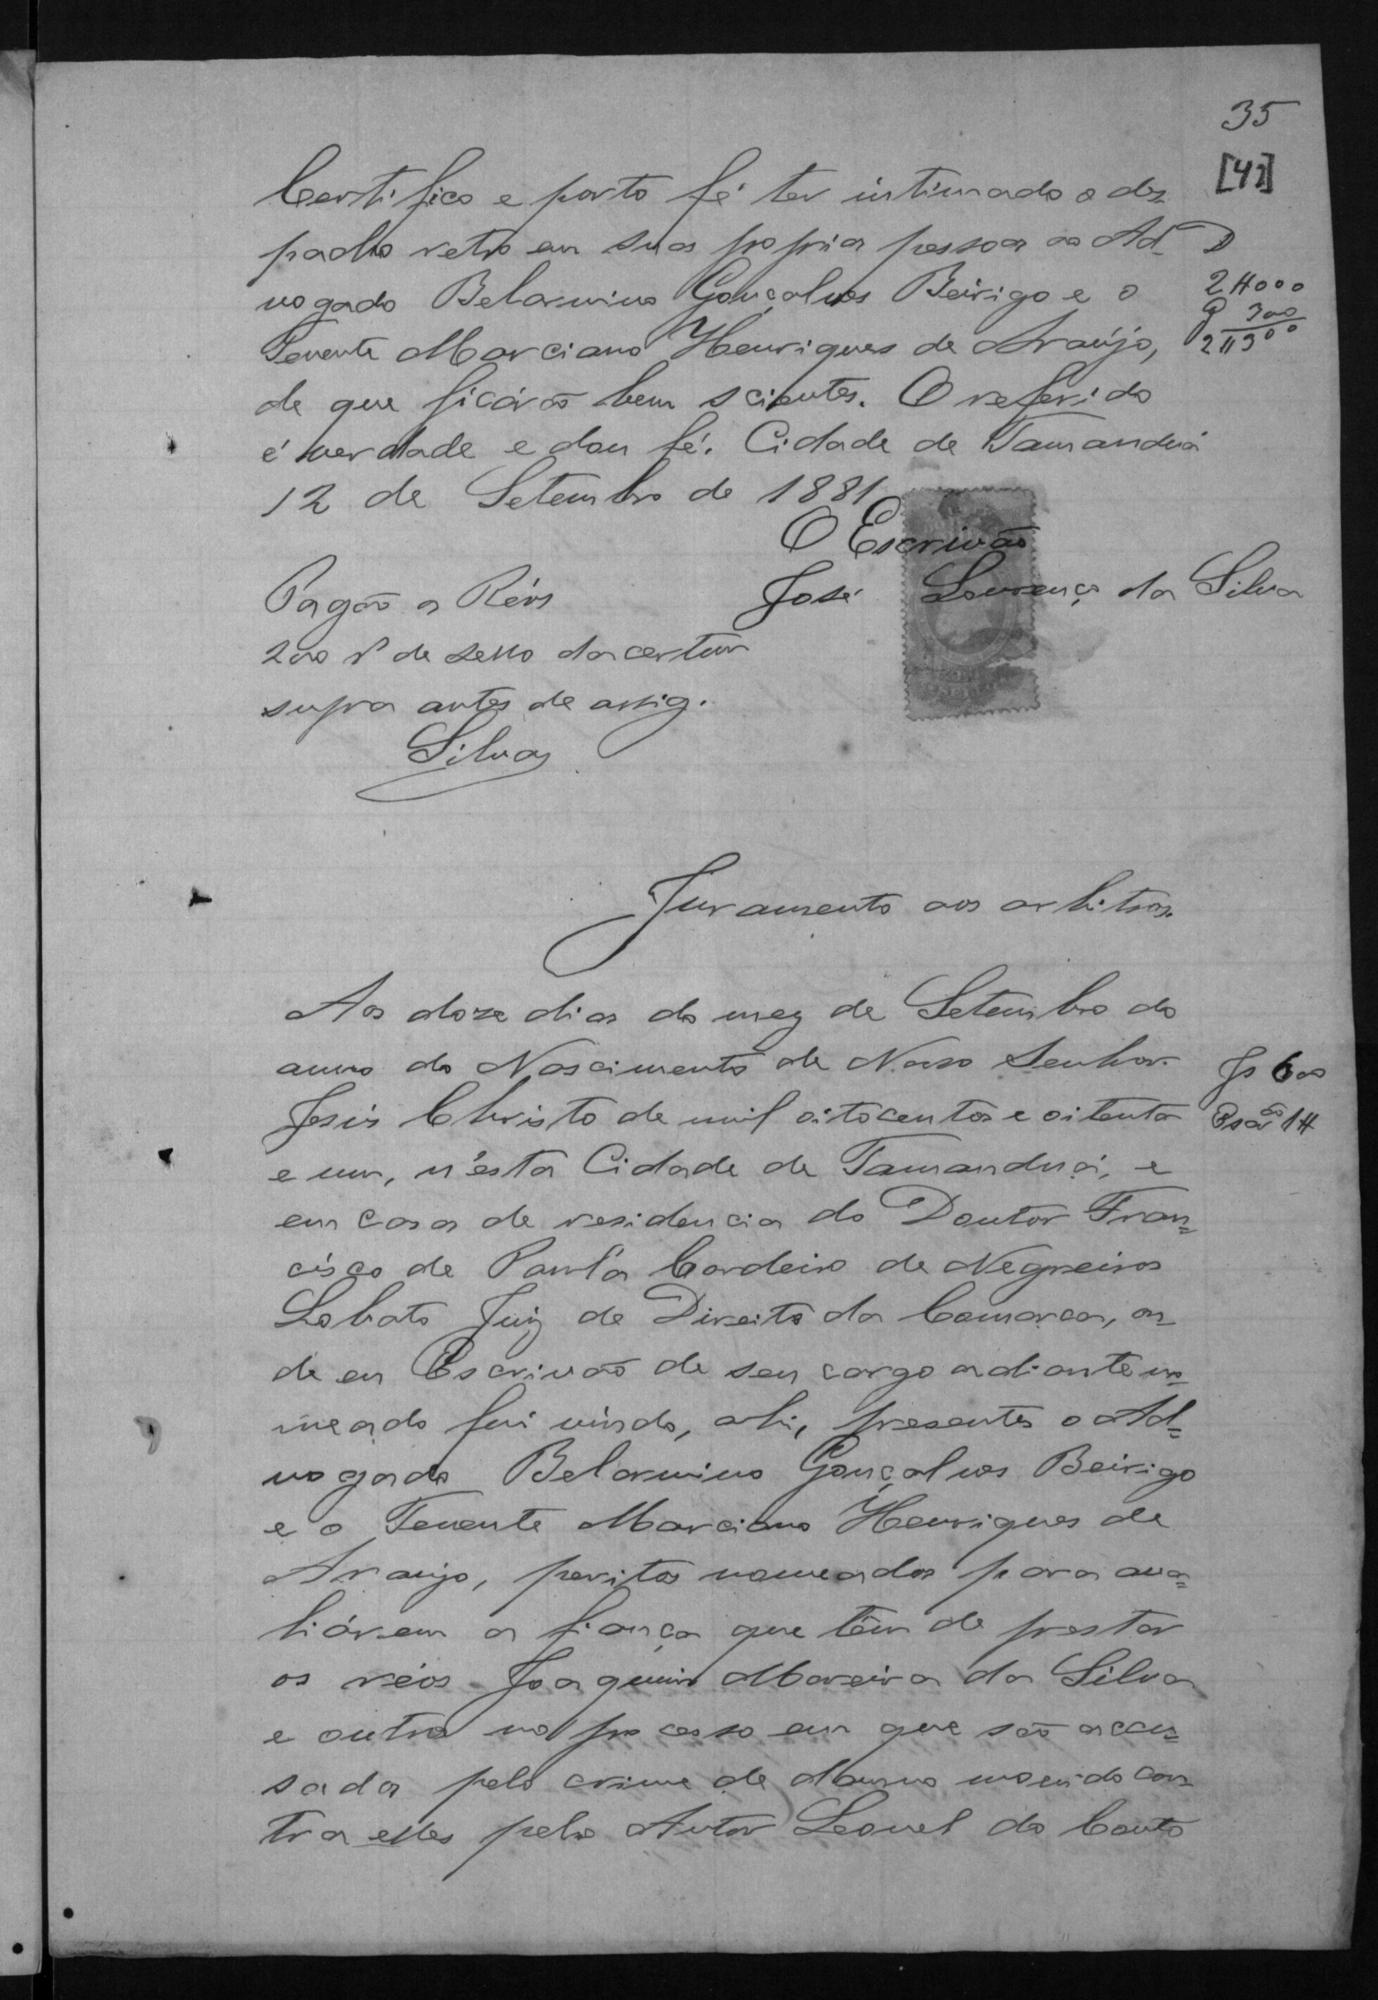 35
[42]
Certifico e porto fé ter intimado o des
pacho retro em sua propria pessoa ao Ad-
vogado Belarmino Gonçalves Beirigo e o
Tenente Marciano Henriques de Araújo,
de que ficárão bem scientes. O referido
é verdade e dou fé. Cidade de Tamanduá
12 de Setembro de 1881
O Escrivão
José Lourenço da Silva
D
2#000
300
2#300
Pagão os Réos
200 rs de sello da certam
supra antes de assig.
Silva
Juramento aos arbitros.
Aos doze dias do mez de Setembro do
anno do Nascimento de Nosso Senhor
Jesús Christo de mil oitocentos e oitenta
e um, n'esta Cidade de Tamanduá, e
em casa de residencia do Doutor Fran=
cisco de Paula Cordeiro de Negreiros
Lobato Juiz de Direito da Comarca, on
de eu Escrivão de seu cargo adiante no=
meado fui vindo, ahi, presentes o Ad=
vogado Belarmino Gonçalves Beirigo
e o Tenente Marciano Henriques de
Araujo, peritos nomeados para ava=
liárem a fiança que têm de prestar
os réos Joaquim Moreira da Silva
e outro no processo em que são accu=
sados pelo crime de damno movido con
tra elles pelo Autor Leonel do Couto
Js 600
1#